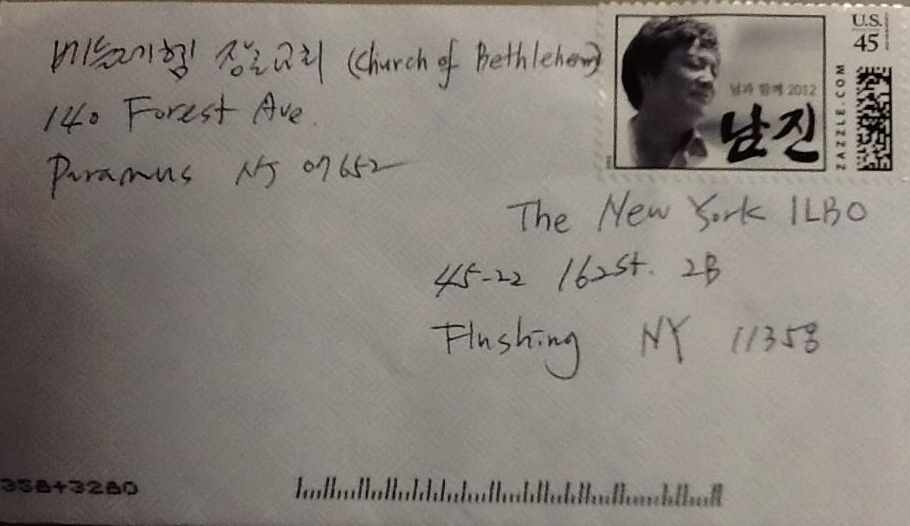 베들레헴 장로교회 (Church of Bethlehem)
140 Forest Ave.
Paramus NJ 07652
U.S.
45
ZAZZLE.COM
님과 함께 2012
남진
The New York ILBO
45-22 162st. 2B
Flushing NY 11358
358+3280